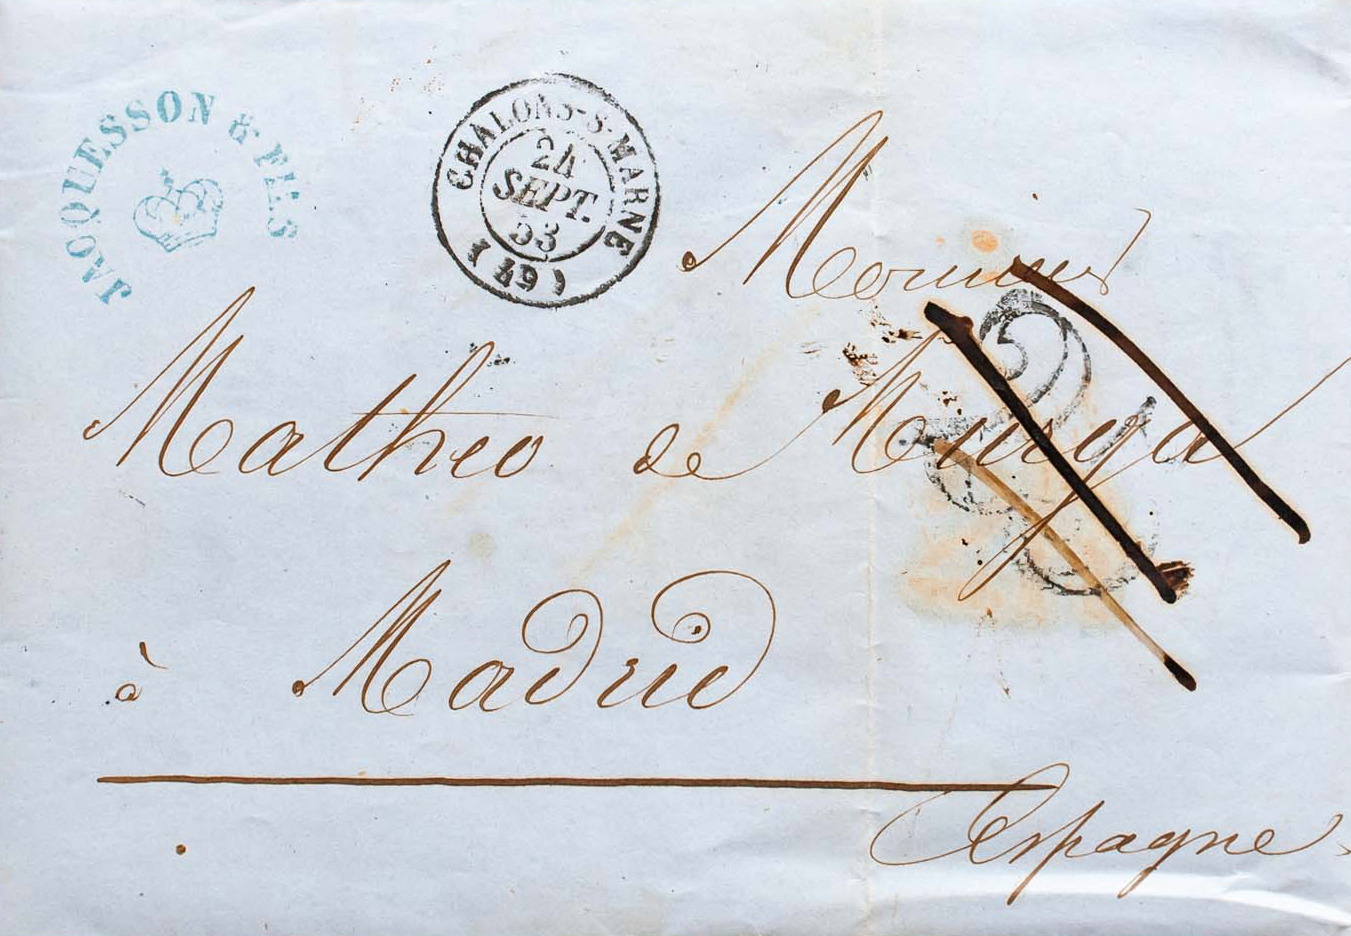 JACQUESSON & FILS
CHALONS-S-MARNE
24
SEPT.
53
(49)
Monsieur
Matheo de
à Madrid
Espagne